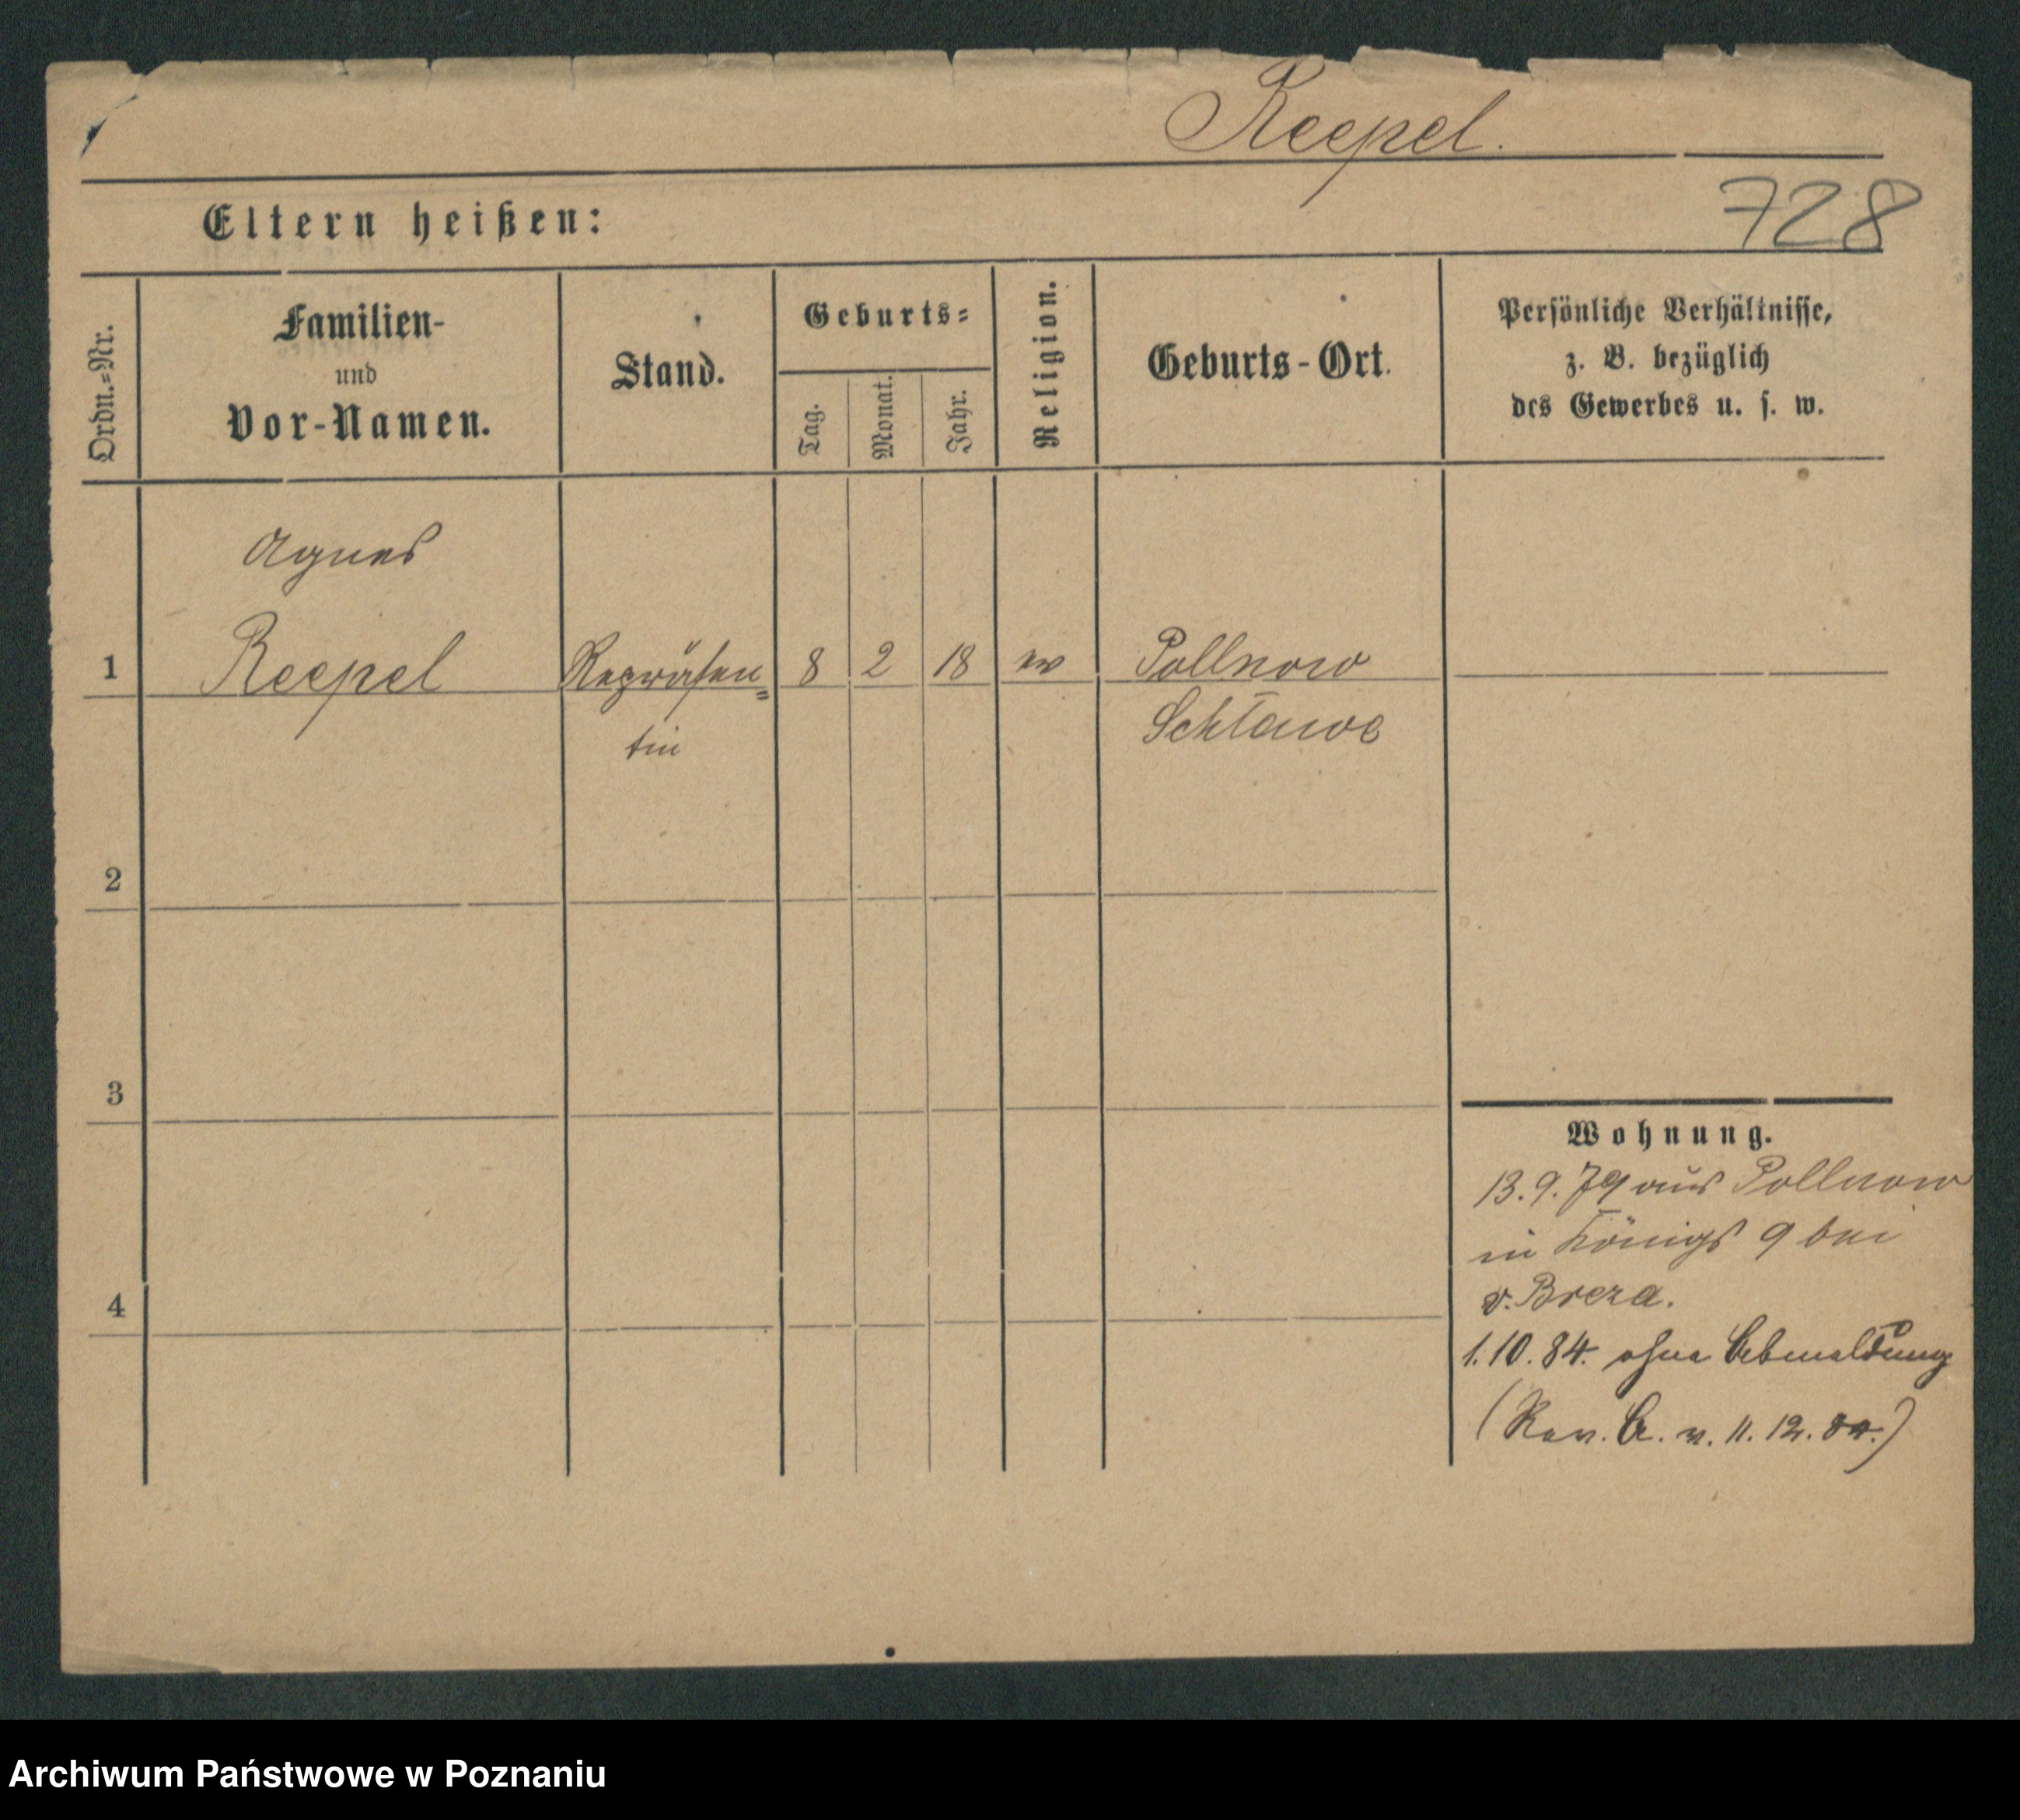 Reepel.
728
Eltern heißen:
Ordn.-Nr.
Familien-
und
Vor-Namen.
Stand.
Geburts-
Tag.
Monat.
Jahr.
Religion.
Geburts-Ort.
Persönliche Verhältnisse,
z. B. bezüglich
des Gewerbes u. s. w.
Agnes
1 Reepel Repräsen= 8 2 18 ev Pollnow
tin Schlawe
2
3
4
Wohnung.
13.9.79 aus Pollnow
in Königs 9 bei
v. Breza.
1.10.84. ohne Abmeldung
(Rev. A. v. 11.12.84.)
Archiwum Państwowe w Poznaniu